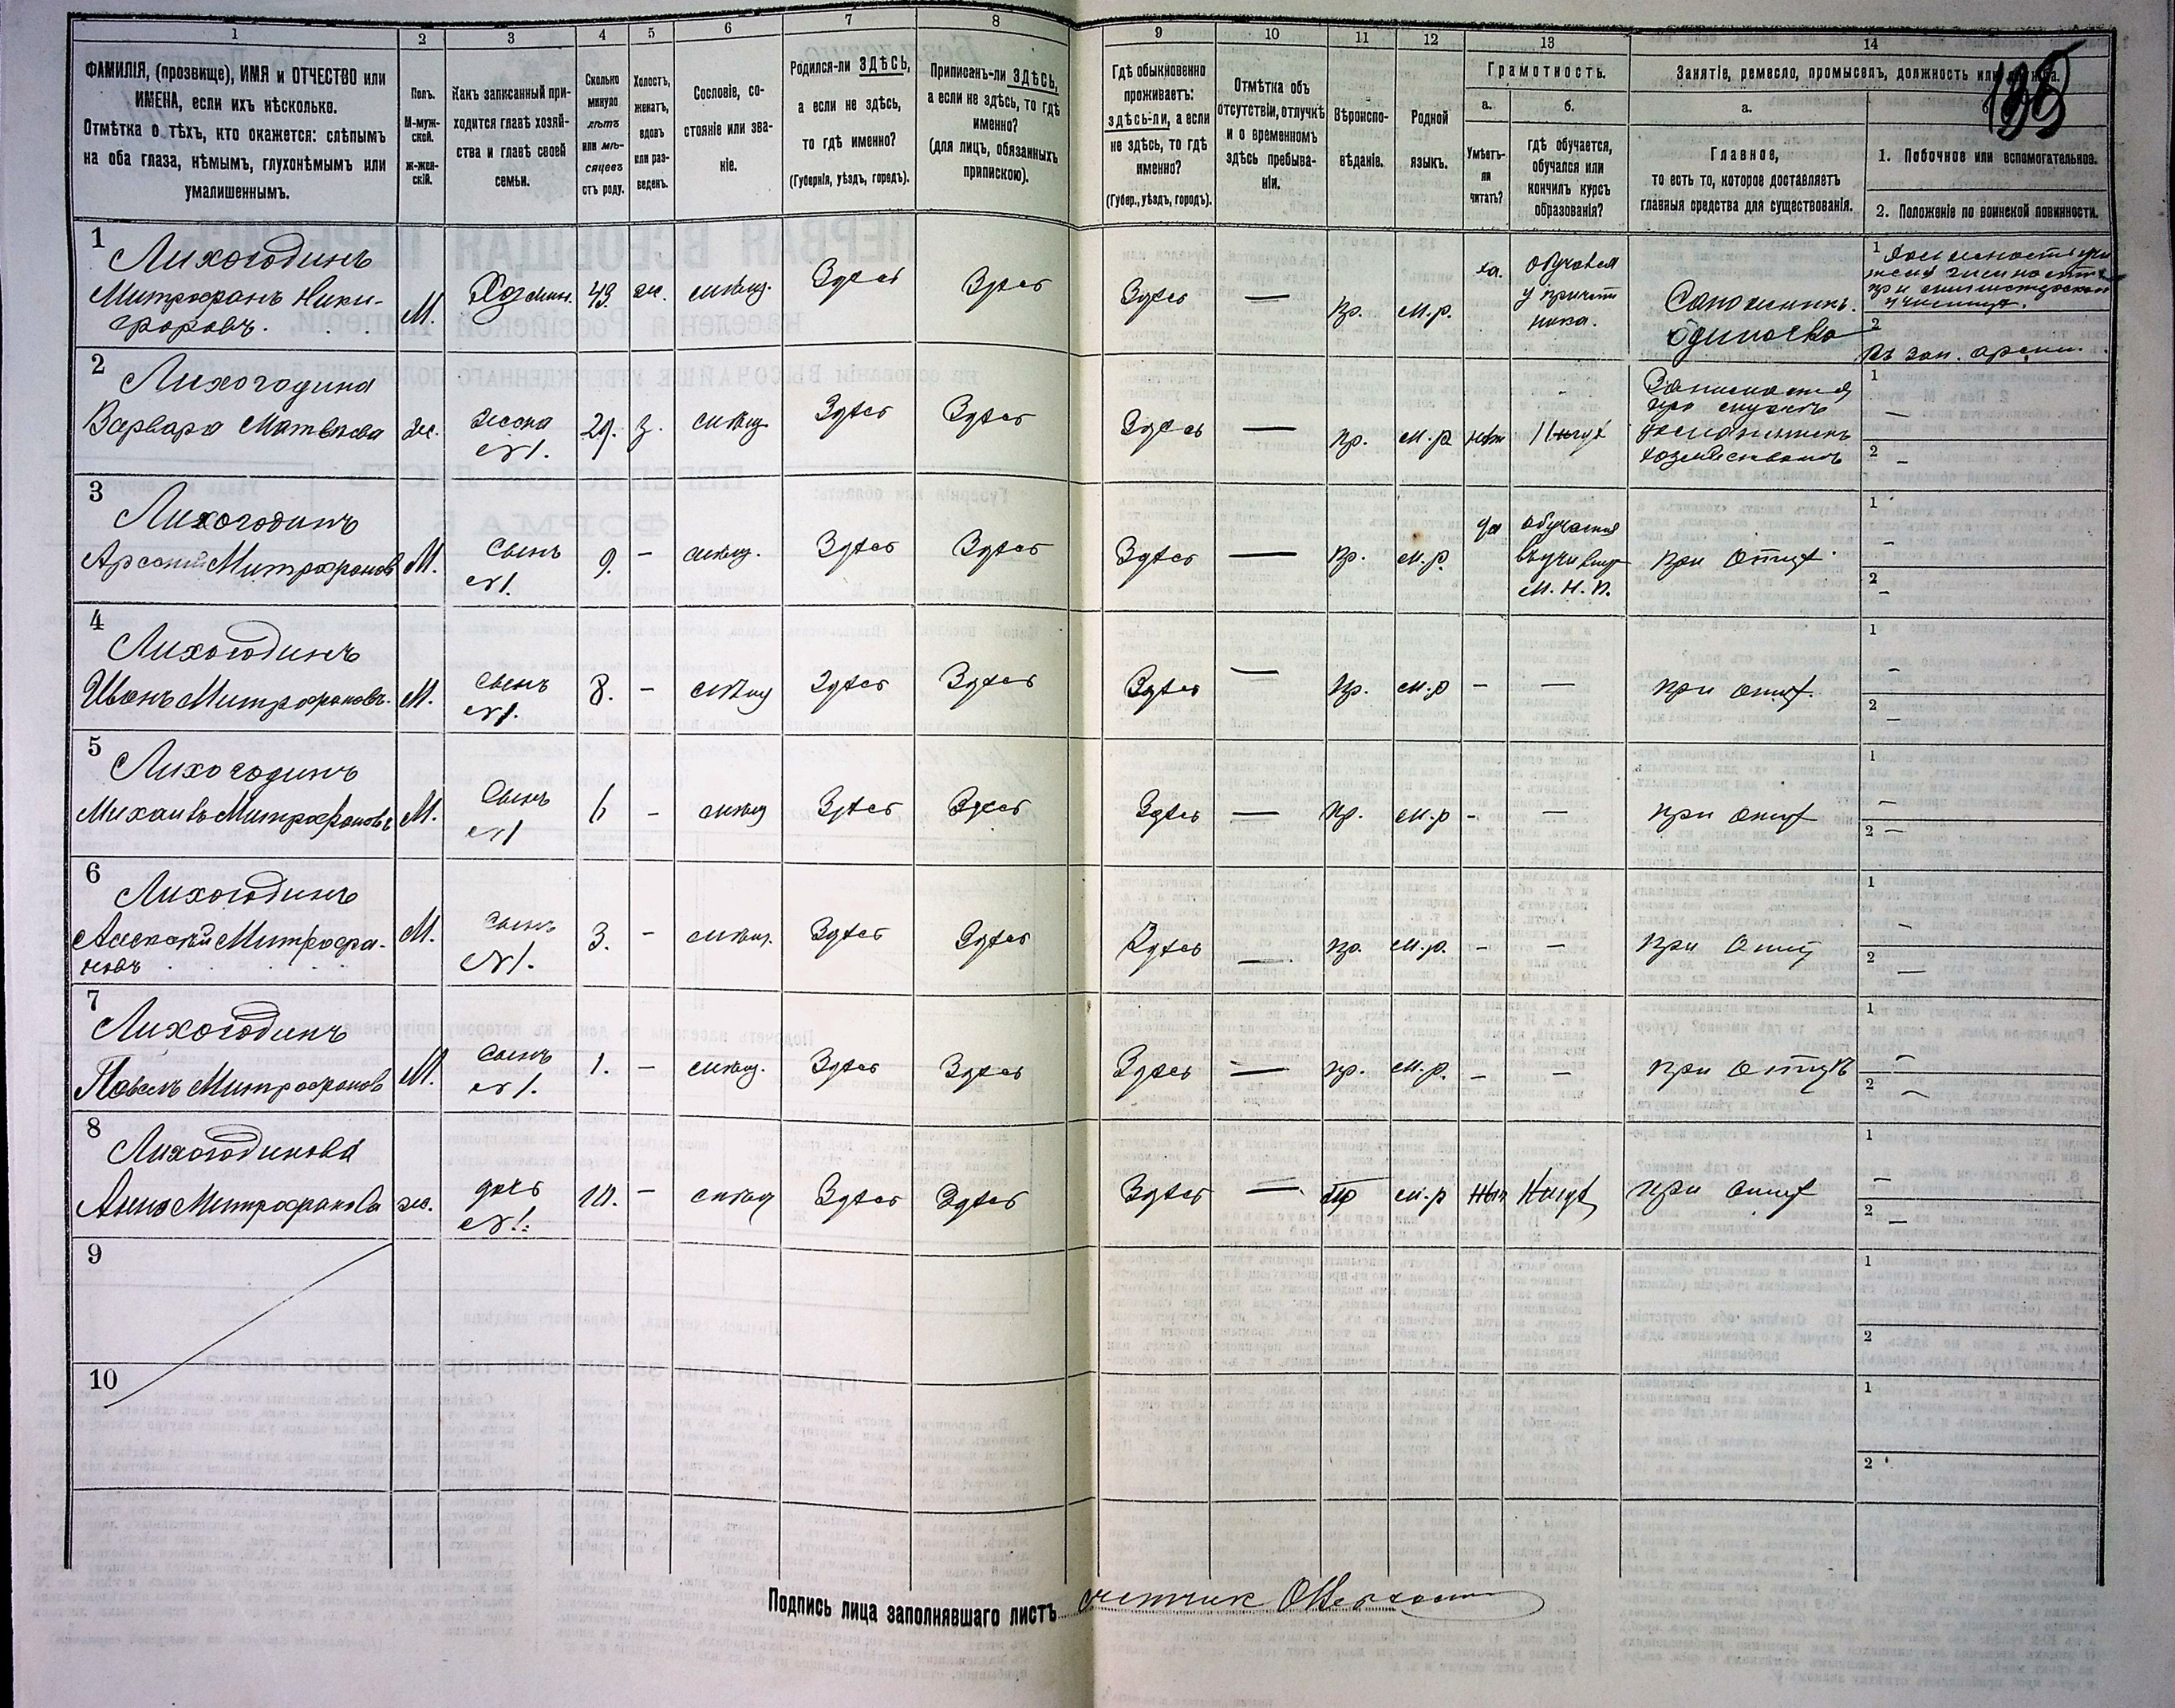 1 2 3 4 5 6 7 8 9 10 11 12 13 14
ФАМИЛІЯ, (прозвище), ИМЯ и ОТЧЕСТВО или
ИМЕНА, если ихъ нѣсколько.
Отмѣтка о тѣхъ, кто окажется: слѣпымъ
на оба глаза, нѣмымъ, глухонѣмымъ или
умалишеннымъ.
Полъ.
М-муж-
ской.
Ж-жен-
скій.
Какъ записанный при-
ходится главѣ хозяй-
ства и главѣ своей
семьи.
Сколько
минуло
лѣтъ
или мѣ-
сяцевъ
отъ роду.
Холостъ,
женатъ,
вдовъ
или раз-
веденъ.
Сословіе, со-
стояніе или зва-
ніе.
Родился-ли ЗДѢСЬ,
а если не здѣсь,
то гдѣ именно?
(Губернія, уѣздъ, городъ).
Приписанъ-ли ЗДѢСЬ,
а если не здѣсь, то гдѣ
именно?
(для лицъ, обязанныхъ
припискою).
Гдѣ обыкновенно
проживаетъ:
здѣсь-ли, а если
не здѣсь, то гдѣ
именно?
(Губер., уѣздъ, городъ).
Отмѣтка объ
отсутствіи, отлучкѣ
и о временномъ
здѣсь пребыва-
ніи.
Вѣроиспо-
вѣданіе.
Родной
языкъ.
Грамотность.
а.
Умѣетъ-
ли
читать?
б.
гдѣ обучается,
обучался или
кончилъ курсъ
образованія?
Занятіе, ремесло, промыселъ, должность или
а.
Главное,
то есть то, которое доставляетъ
главныя средства для существованія.
1. Побочное или вспомогательное.
2. Положеніе по воинской повинности.
1
Лихогодинъ
Митрофанъ Ники-
форовъ.
М. Хозяин. 43 ж. мѣщ. Здѣсь Здѣсь Здѣсь — пр. м.р. да.
обучался
у причет
ника.
Сапожникъ.
одиночка
1
училища.
2
въ зап. арміи.
2
Лихогодина
Варвара Матвѣева
ж. жена №1. з. мѣщ. Здѣсь Здѣсь Здѣсь — пр. м.р нѣт
при мужѣ
домашнимъ
хозяйствомъ
1 —
2 —
3
Лихогодинъ
Арсеній Митрофановъ
М. сынъ №1. 9. — мѣщ. Здѣсь Здѣсь Здѣсь — пр. м.р. да
обучается
М. Н. П.
при отцѣ
1 —
2 —
4
Лихогодинъ
Иванъ Митрофановъ.
М. сынъ №1. 8. — мѣщ Здѣсь Здѣсь Здѣсь — пр. м.р — — при отцѣ.
1 —
2 —
5
Лихогодинъ
Михаилъ Митрофановъ
М. Сынъ №1 6 — мѣщ Здѣсь Здѣсь Здѣсь — пр. м.р — — при отцѣ
1 —
2 —
6
Лихогодинъ
Алексѣй Митрофа-
новъ
М. сынъ №1. 3. — мѣщ. Здѣсь Здѣсь Здѣсь — пр. м.р. — — при отцѣ
1 —
2 —
7
Лихогодинъ
Павелъ Митрофановъ
М. сынъ №1. 1. — мѣщ. Здѣсь Здѣсь Здѣсь — пр. м.р. — — при отцѣ
1 —
2 —
8
Лихогодинова
Анна Митрофанова
ж. дочь №1. — мѣщ Здѣсь Здѣсь Здѣсь — пр м.р нѣт при отцѣ
1 —
2 —
9
1
2
10
1
2
Подпись лица заполнявшаго листъ счетчик